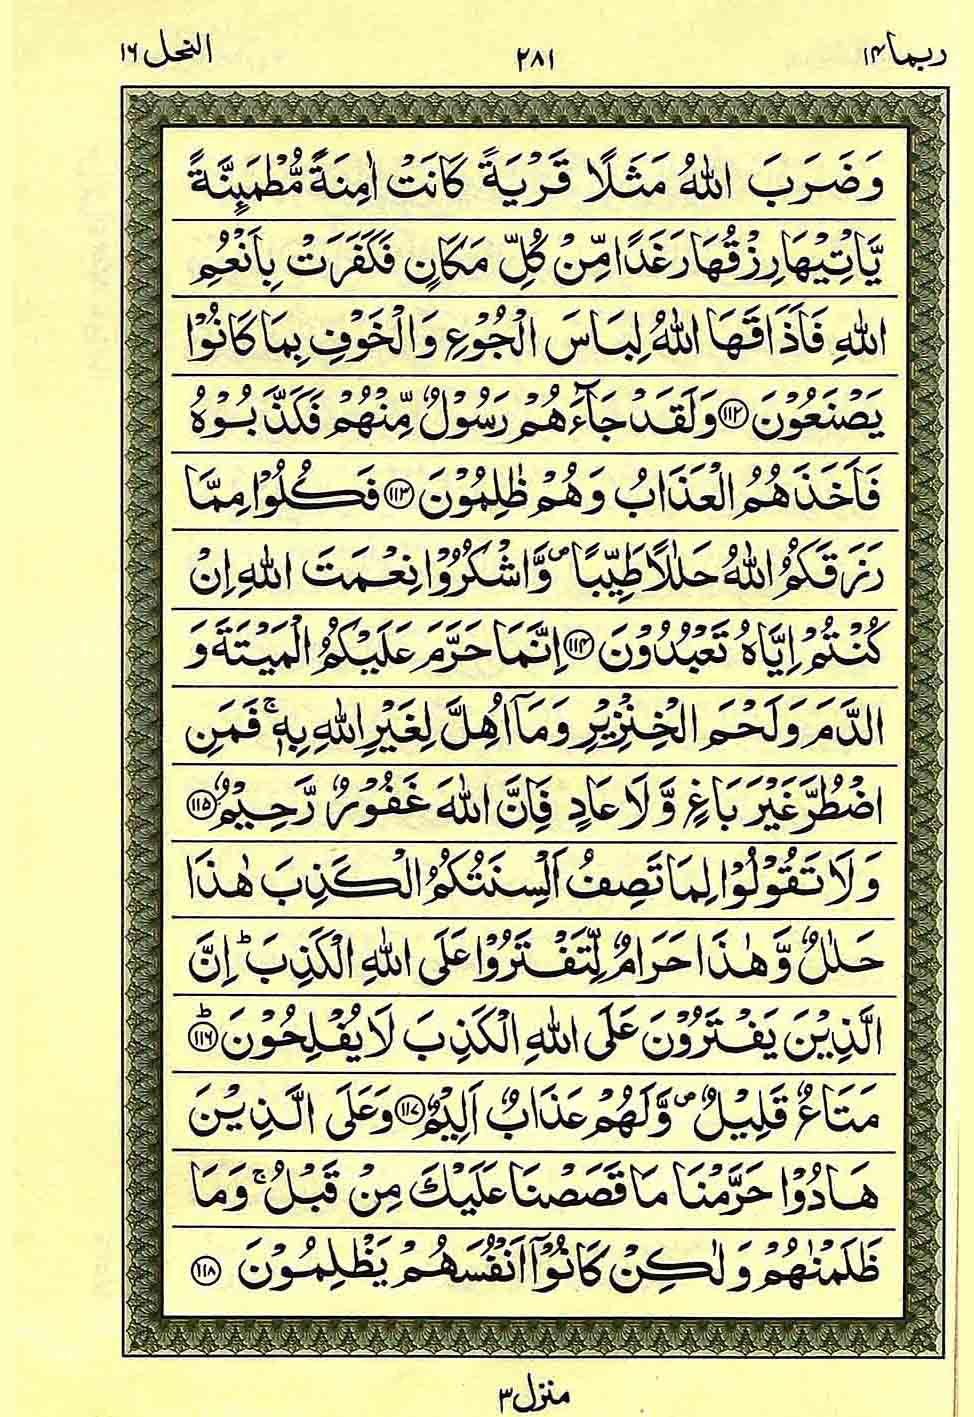 ربما ١٤ ٢٨١ النحل ١٦
وَضَرَبَ اللّٰهُ مَثَلًا قَرْيَةً كَانَتْ اٰمِنَةً مُّطْمَىِٕنَّةً
يَّاْتِيْهَا رِزْقُهَا رَغَدًا مِّنْ كُلِّ مَكَانٍ فَكَفَرَتْ بِاَنْعُمِ
اللّٰهِ فَاَذَاقَهَا اللّٰهُ لِبَاسَ الْجُوْعِ وَالْخَوْفِ بِمَا كَانُوْا
يَصْنَعُوْنَ ﴿١١٢﴾ وَلَقَدْ جَآءَهُمْ رَسُوْلٌ مِّنْهُمْ فَكَذَّبُوْهُ
فَاَخَذَهُمُ الْعَذَابُ وَهُمْ ظٰلِمُوْنَ ﴿١١٣﴾ فَكُلُوْا مِمَّا
رَزَقَكُمُ اللّٰهُ حَلٰلًا طَيِّبًا ۪ وَّاشْكُرُوْا نِعْمَتَ اللّٰهِ اِنْ
كُنْتُمْ اِيَّاهُ تَعْبُدُوْنَ ﴿١١٤﴾ اِنَّمَا حَرَّمَ عَلَيْكُمُ الْمَيْتَةَ وَ
الدَّمَ وَلَحْمَ الْخِنْزِيْرِ وَمَآ اُهِلَّ لِغَيْرِ اللّٰهِ بِهٖ ۚ فَمَنِ
اضْطُرَّ غَيْرَ بَاغٍ وَّلَا عَادٍ فَاِنَّ اللّٰهَ غَفُوْرٌ رَّحِيْمٌ ﴿١١٥﴾
وَلَا تَقُوْلُوْا لِمَا تَصِفُ اَلْسِنَتُكُمُ الْكَذِبَ هٰذَا
حَلٰلٌ وَّهٰذَا حَرَامٌ لِّتَفْتَرُوْا عَلَى اللّٰهِ الْكَذِبَ ؕ اِنَّ
الَّذِيْنَ يَفْتَرُوْنَ عَلَى اللّٰهِ الْكَذِبَ لَا يُفْلِحُوْنَ ؕ ﴿١١٦﴾
مَتَاعٌ قَلِيْلٌ ۪ وَّلَهُمْ عَذَابٌ اَلِيْمٌ ﴿١١٧﴾ وَعَلَى الَّذِيْنَ
هَادُوْا حَرَّمْنَا مَا قَصَصْنَا عَلَيْكَ مِنْ قَبْلُ ۚ وَمَا
ظَلَمْنٰهُمْ وَلٰكِنْ كَانُوْۤا اَنْفُسَهُمْ يَظْلِمُوْنَ ﴿١١٨﴾
منزل ٣